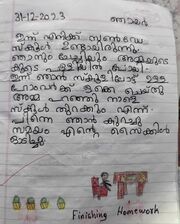 31-12-2023 ഞായർ
ഇന്ന് എനിക്ക് സൺഡേ
സ്കൂൾ ഉണ്ടായിരുന്നു.
ഞാനും ചേച്ചിയും അമ്മയുടെ
കൂടെ പള്ളിയിൽ പോയി.
ഇന്ന് ഞാൻ സ്കൂളിലോട്ട് ഉള്ള
ഹോംവർക്ക് ഒക്കെ ചെയ്തു
അമ്മ പറഞ്ഞു നാളെ
സ്കൂൾ തുറക്കും എന്ന്.
പിന്നെ ഞാൻ കുറച്ചു
സമയം എന്റെ സൈക്കിൾ
ഓടിച്ചു.
Finishing Homework